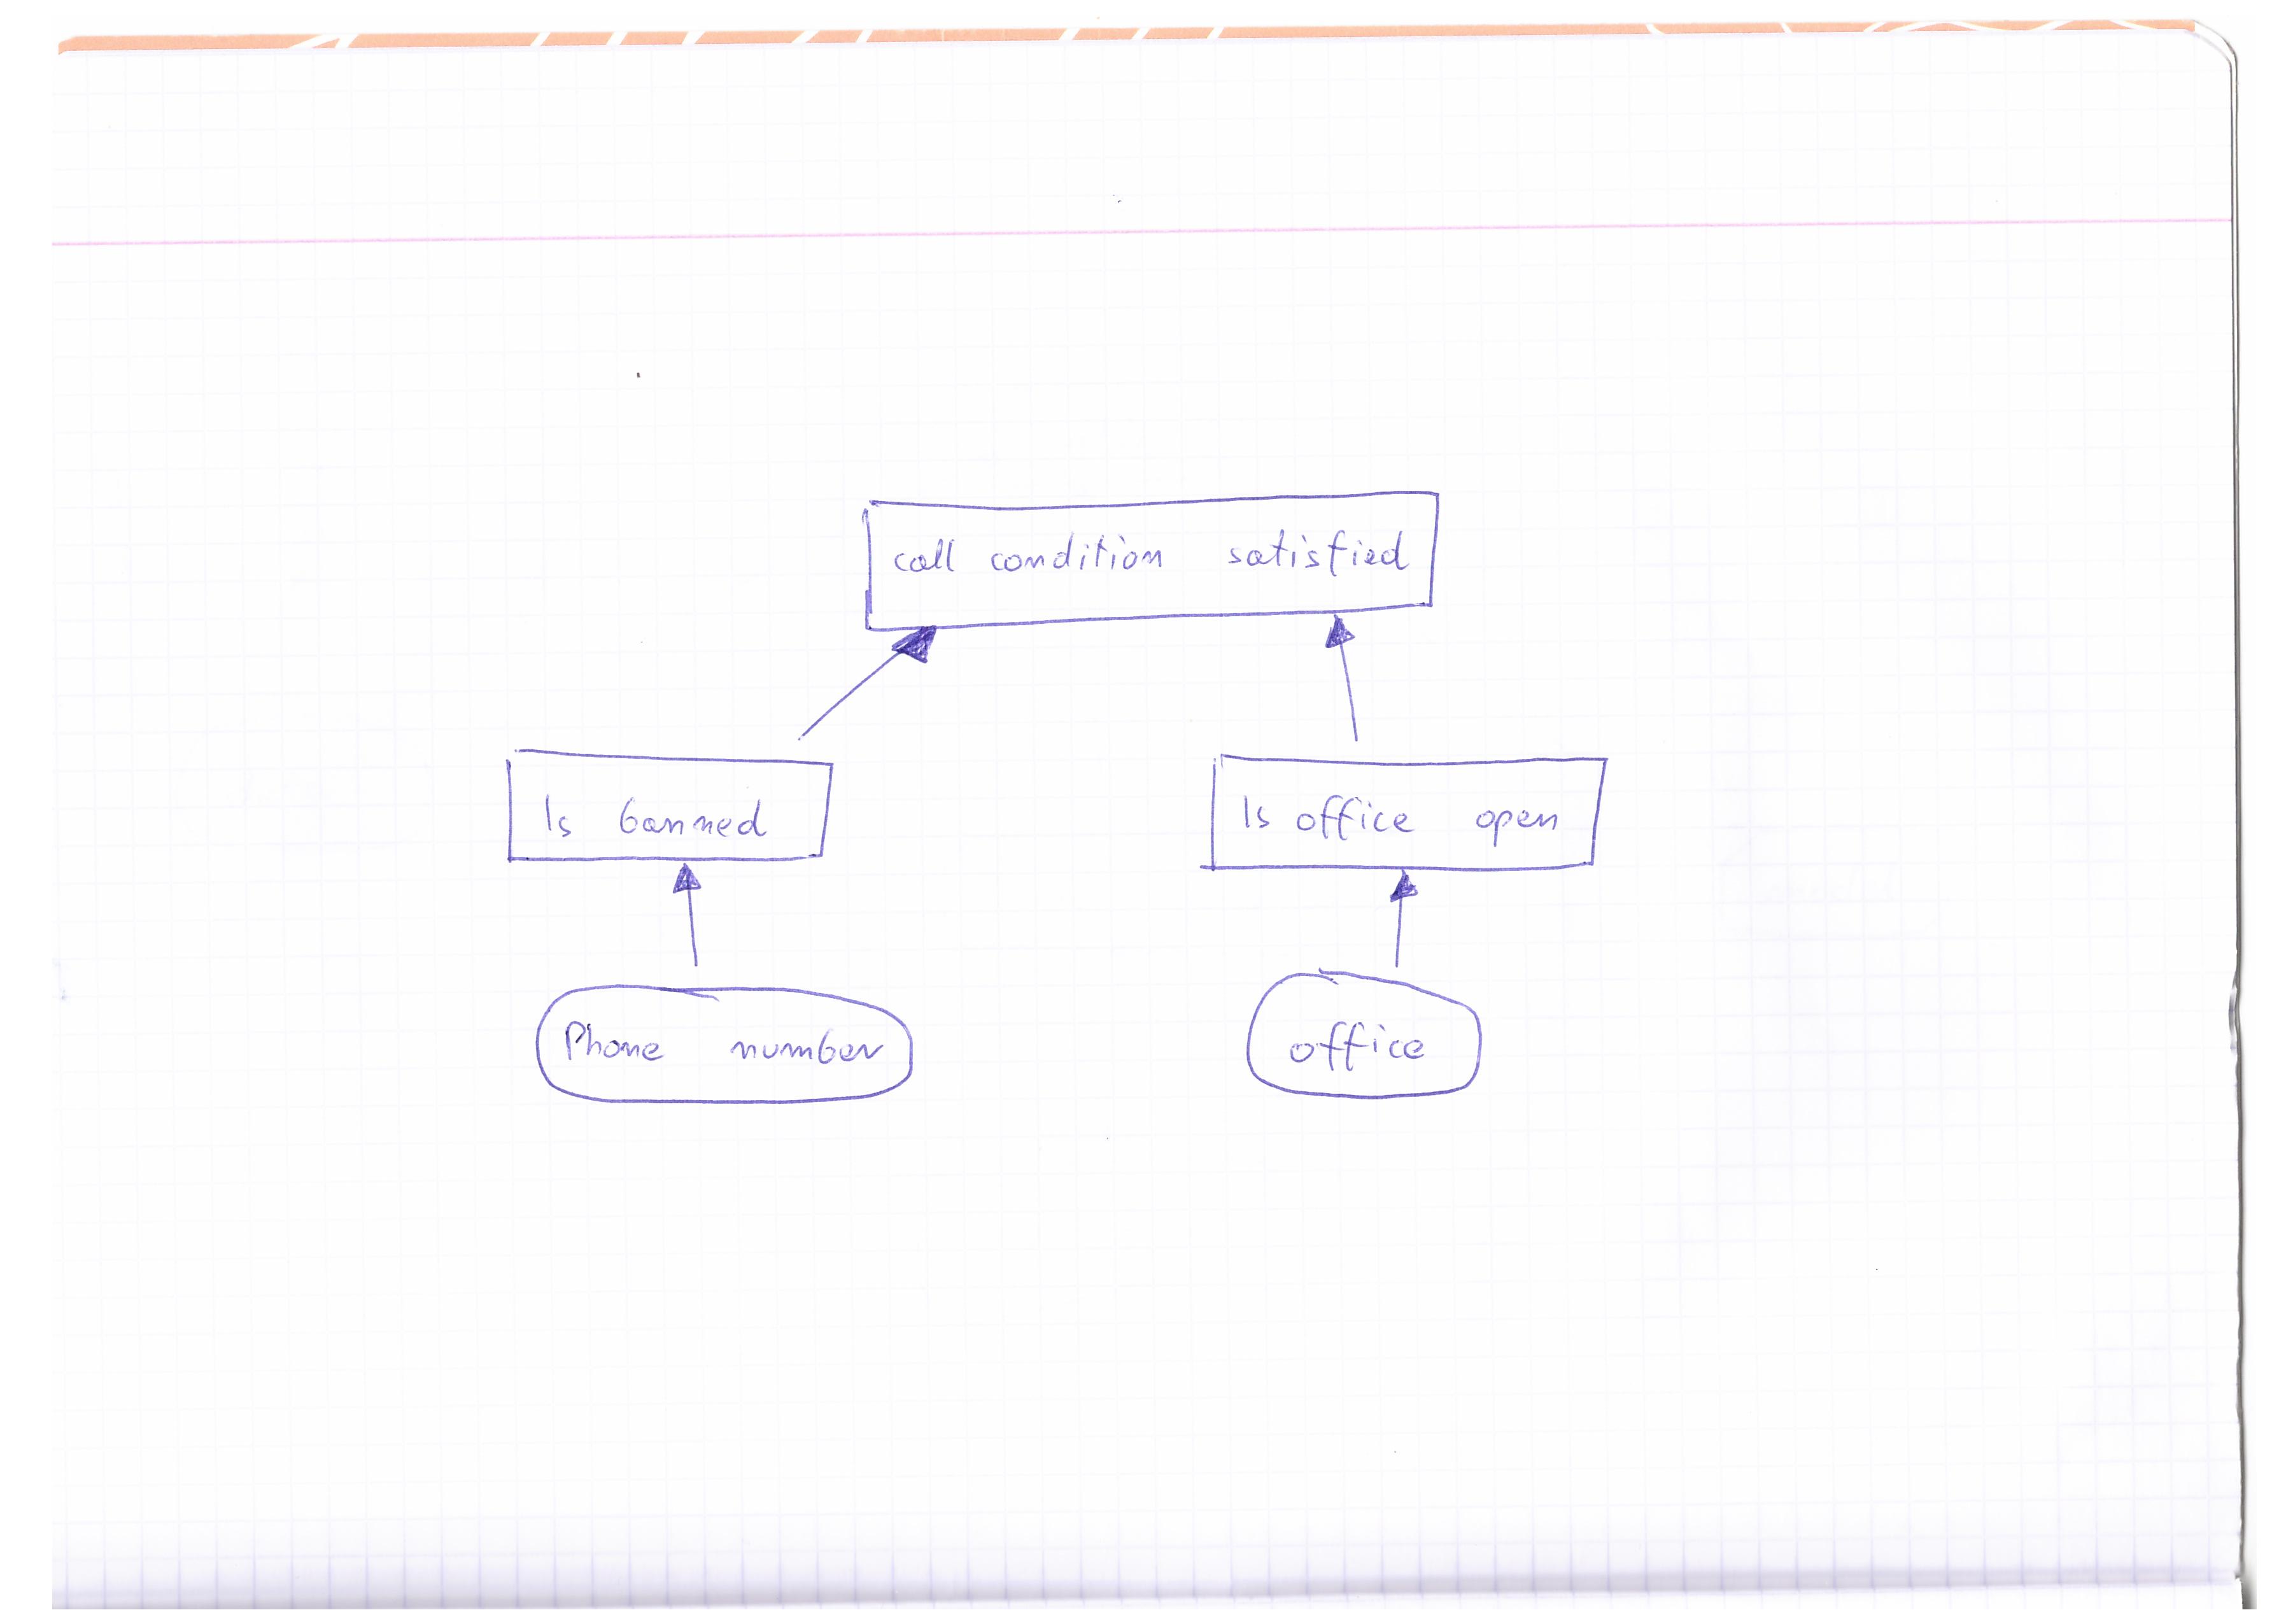 call condition satisfied
Is banned
Is office open
Phone number
office